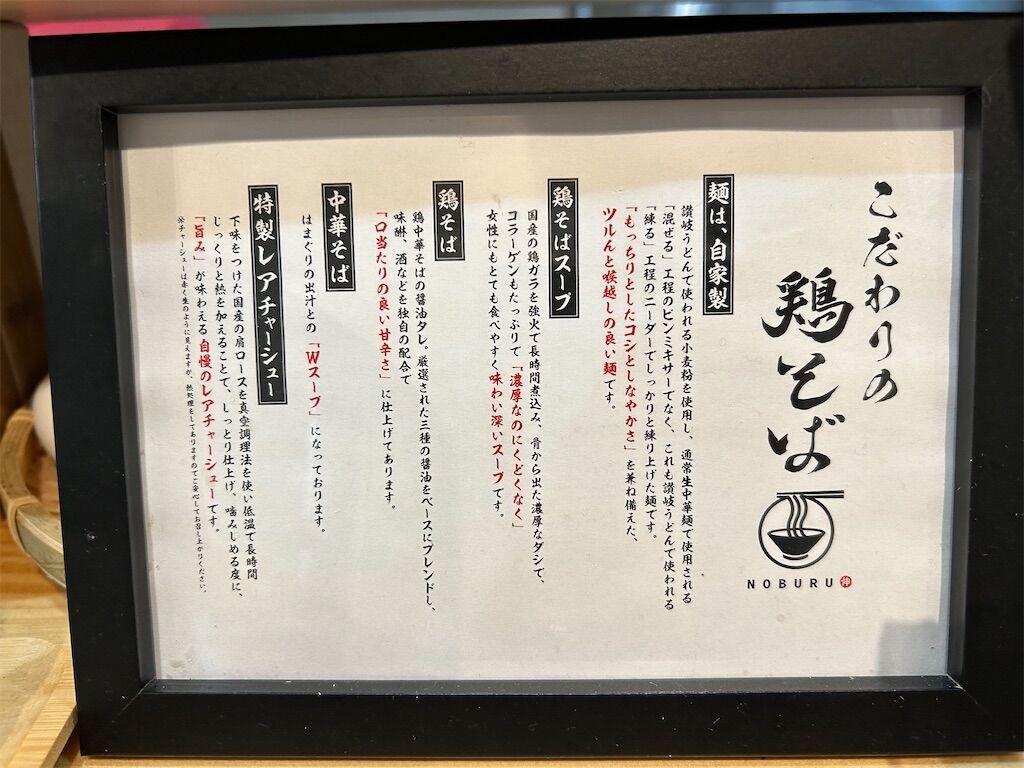 こだわりの
鶏そば
NOBURU
麺は、自家製
讃岐うどんで使われる小麦粉を使用し、通常生中華麺で使用される
「混ぜる」工程のピンミキサーでなく、これも讃岐うどんで使われる
「練る」工程のニーダーでしっかりと練り上げた麺です。
「もっちりとしたコシとしなやかさ」を兼ね備えた、
ツルんと喉越しの良い麺です。
鶏そばスープ
国産の鶏ガラを強火で長時間煮込み、骨から出た濃厚なダシで、
コラーゲンもたっぷりで「濃厚なのにくどくなく」
女性にもとても食べやすく味わい深いスープです。
鶏そば
鶏中華そばの醤油タレ。厳選された三種の醤油をベースにブレンドし、
味醂、酒などを独自の配合で
「口当たりの良い甘辛さ」に仕上げてあります。
中華そば
はまぐりの出汁との「Wスープ」になっております。
特製レアチャーシュー
下味をつけた国産の肩ロースを真空調理法を使い低温で長時間
じっくりと熱を加えることで、しっとり仕上げ、噛みしめる度に、
「旨み」が味わえる自慢のレアチャーシューです。
※チャーシューは赤く生のように見えますが、熱処理をしてありますのでご安心してお召し上がりください。